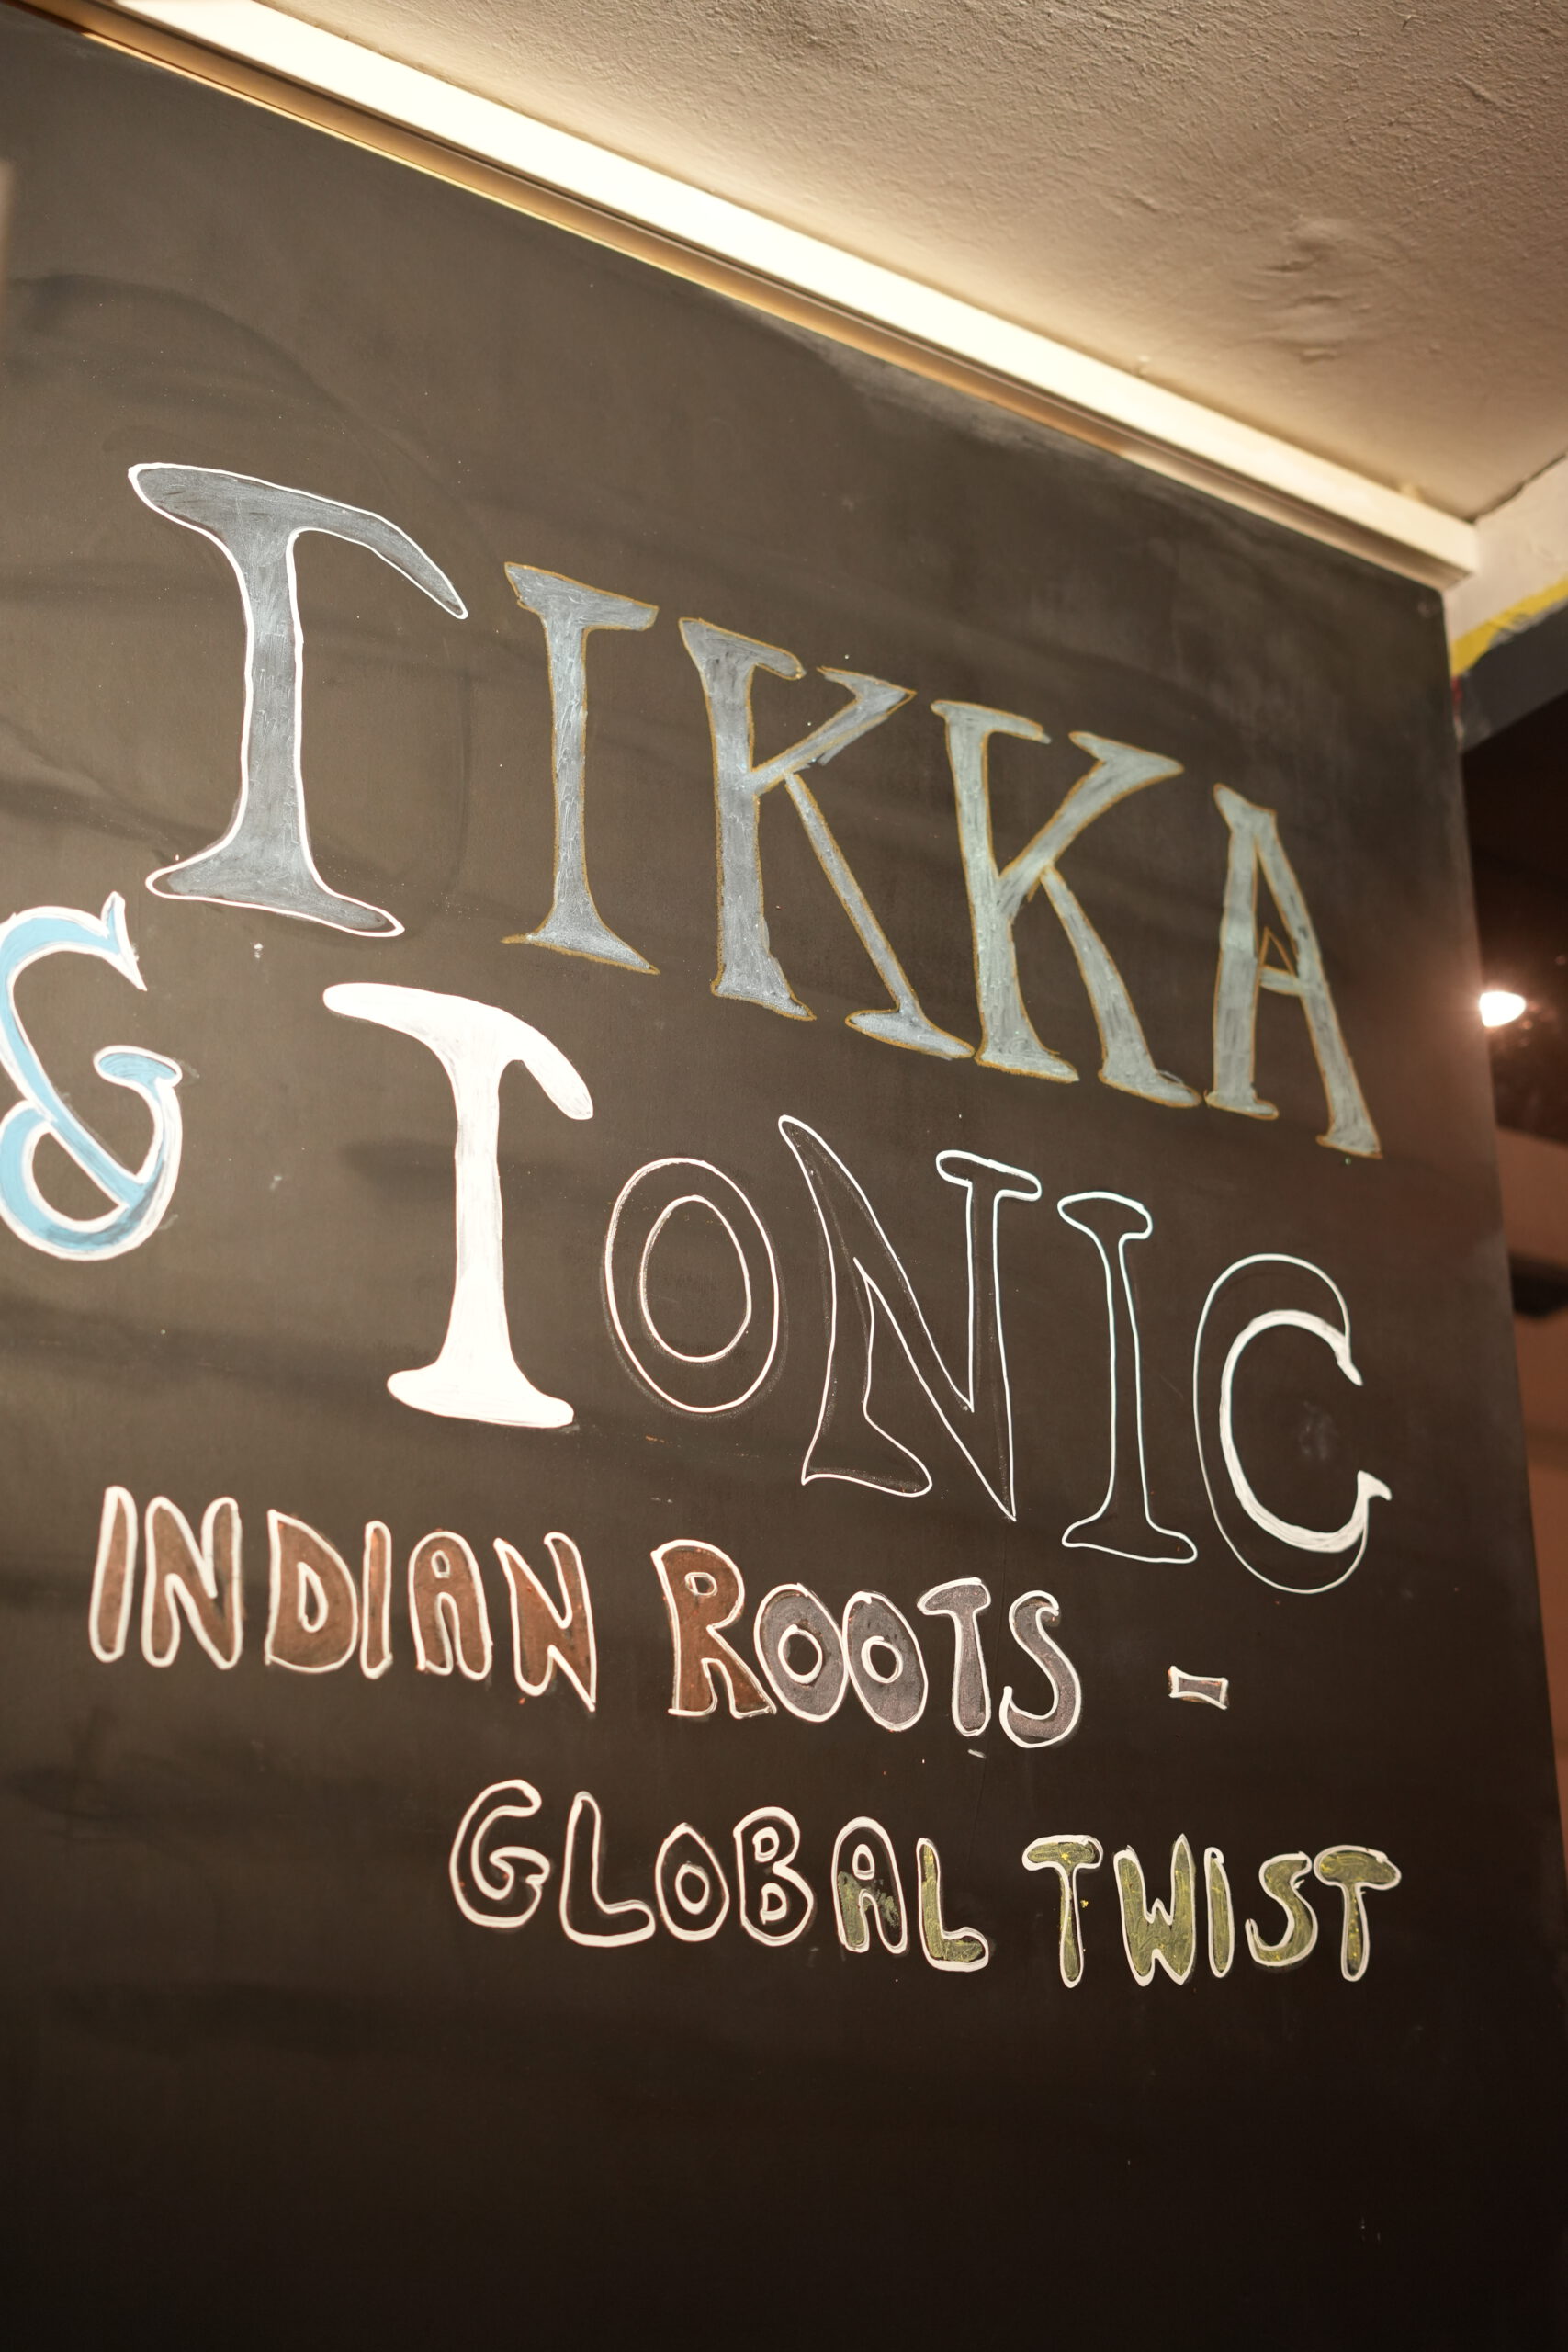 TIKKA
& TONIC
INDIAN ROOTS -
GLOBAL TWIST